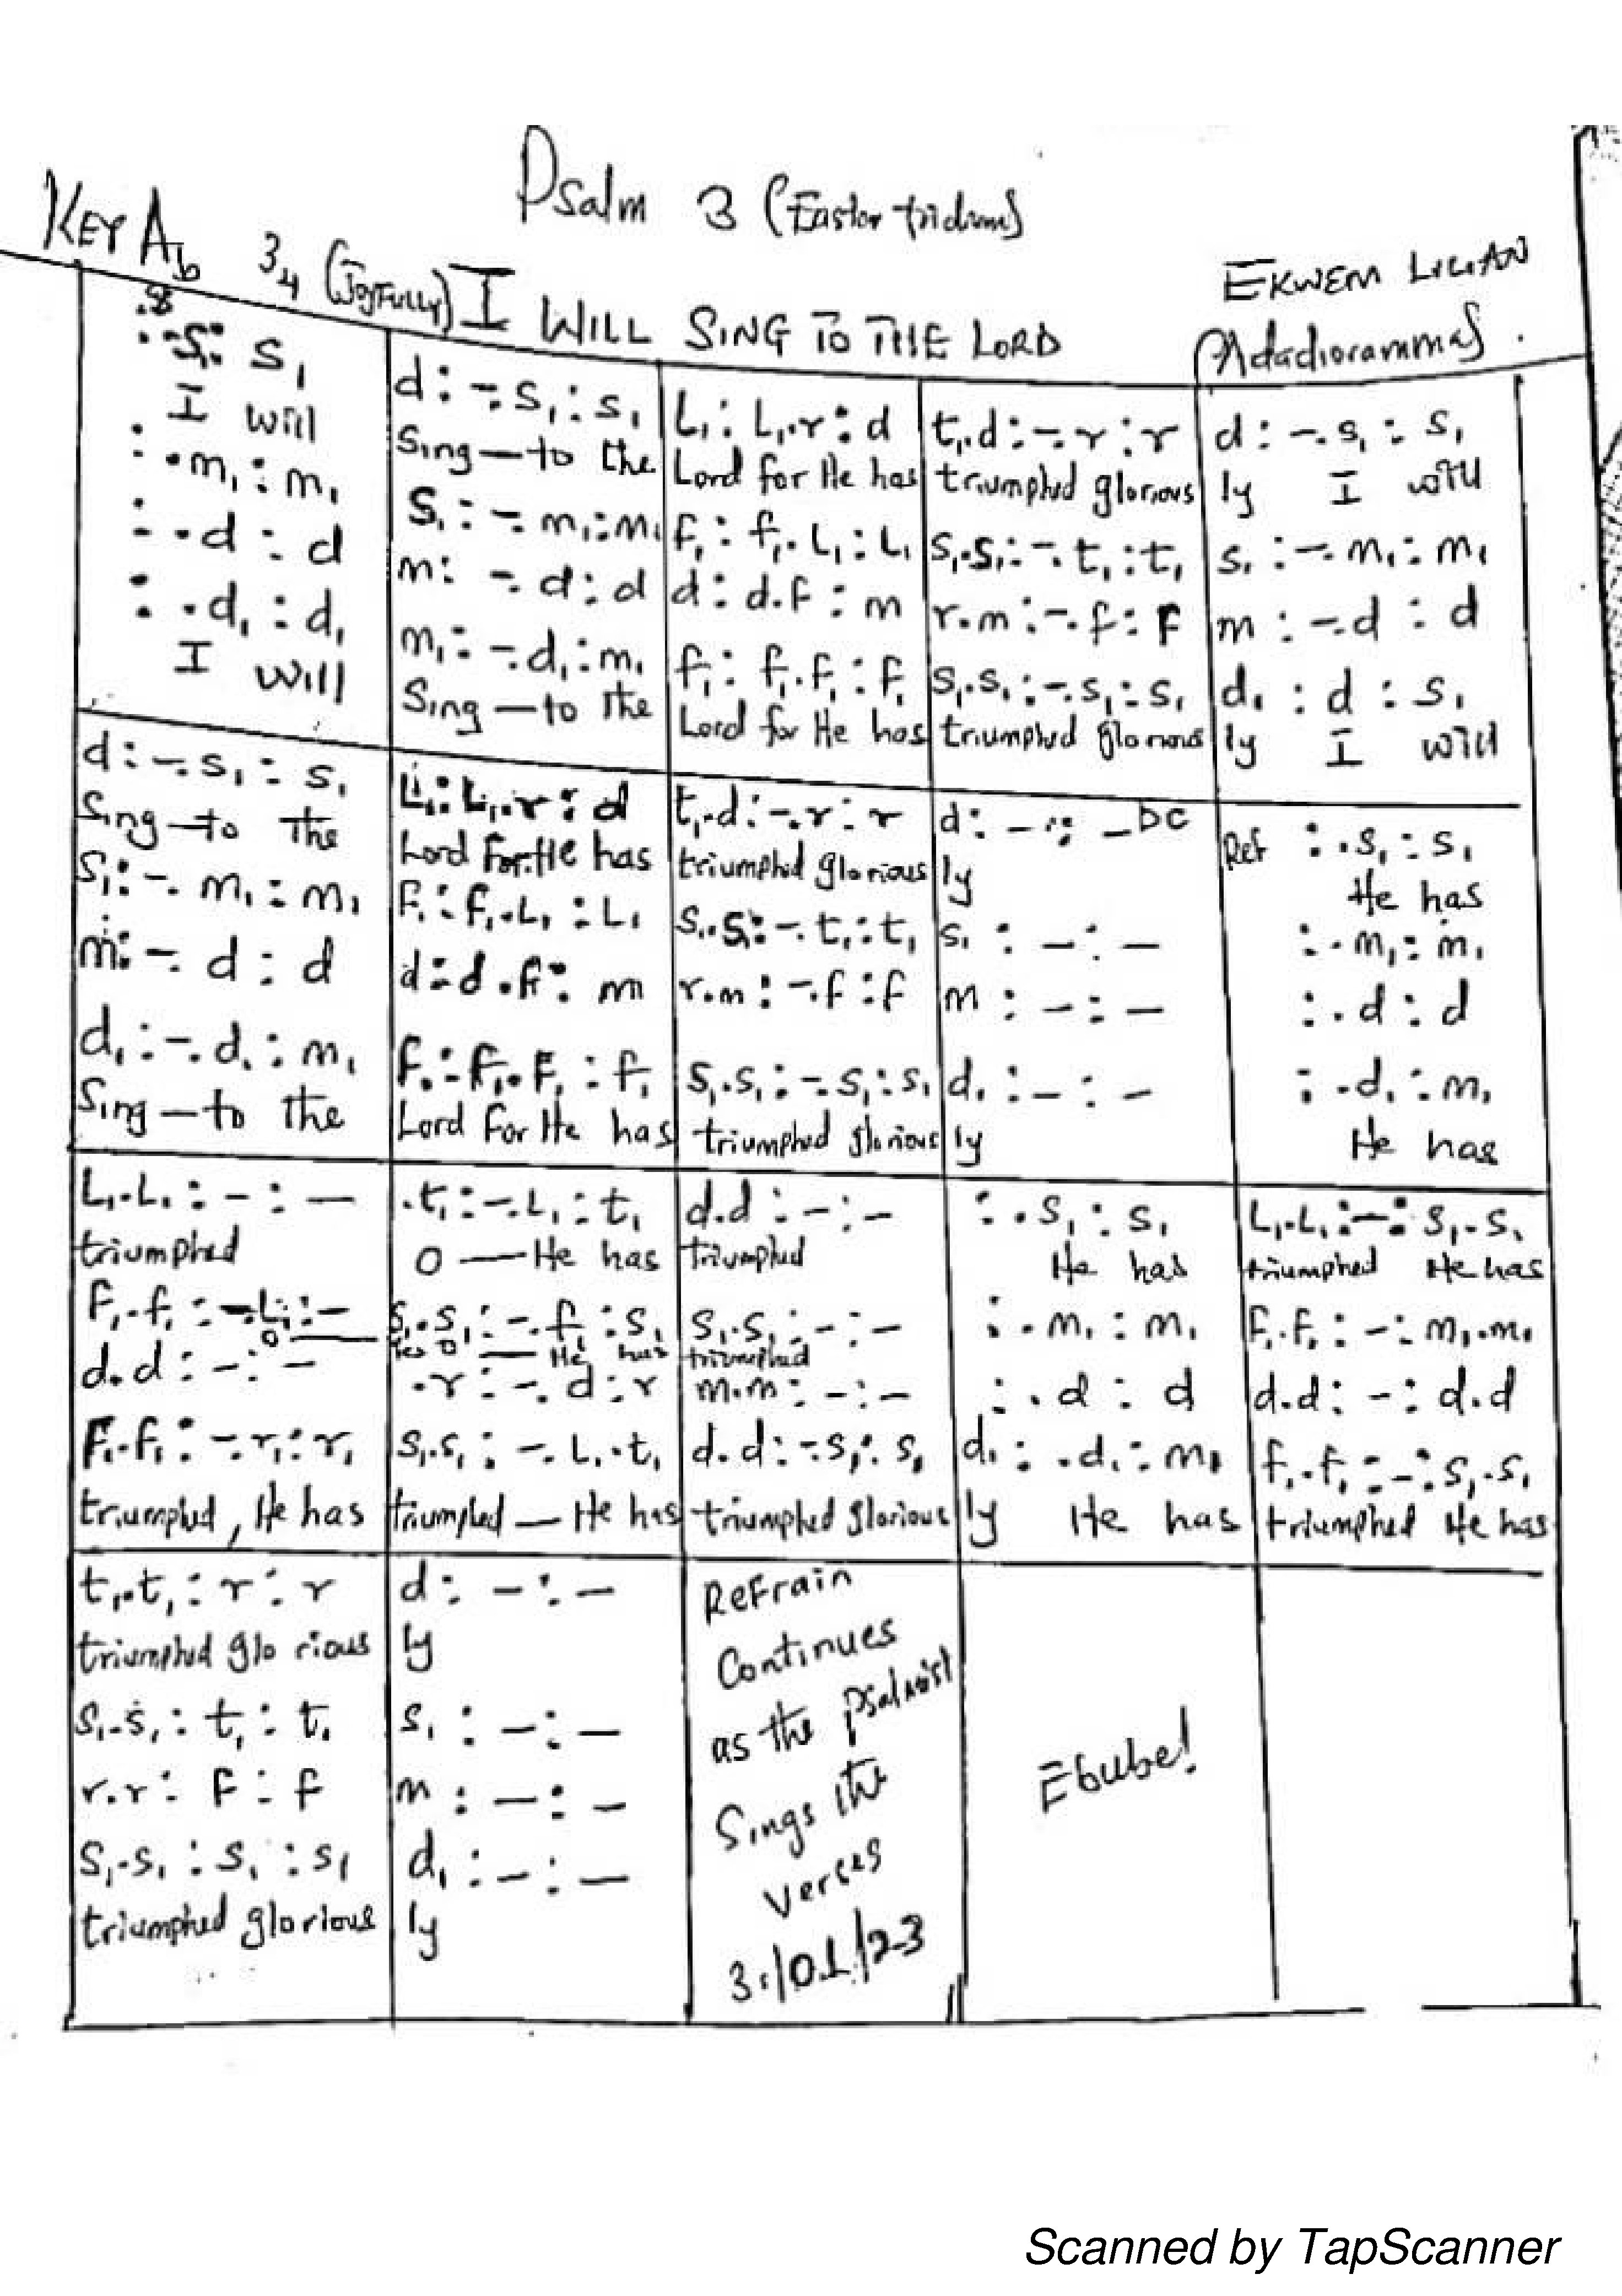 Psalm 3 (Easter tridum)
KEY Ab 3/4 (Joyfully) I WILL SING TO THE LORD
EKWEM LILIAN
(Adadioramma).
: . s, : s, | d : -. s, : s, | L, : L,. r : d | t,. d : -. r : r | d : -. s, : s,
I will | Sing — to the | Lord for He has | triumphed glorious | ly I will
: . m, : m, | s, : -. m, : m, | f, : f,. L, : L, | s,. s, : -. t, : t, | s, : -. m, : m,
: . d : d | m : -. d : d | d : d. f : m | r. m : -. f : f | m : -. d : d
: . d, : d, | m, : -. d, : m, | f, : f,. f, : f, | s,. s, : -. s, : s, | d, : d : s,
I will | Sing — to the | Lord for He has | triumphed glorious | ly I will
d : -. s, : s, | L, : L,. r : d | t,. d : -. r : r | d : - : - DC | Ref : . s, : s,
Sing — to the | Lord For He has | triumphed glorious | ly | He has
s, : -. m, : m, | f, : f,. L, : L, | s,. s, : -. t, : t, | s, : - : - | : . m, : m,
m : -. d : d | d : d. f : m | r. m : -. f : f | m : - : - | : . d : d
d, : -. d, : m, | f, : f,. f, : f, | s,. s, : -. s, : s, | d, : - : - | : . d, : m,
Sing — to the | Lord For He has | triumphed glorious | ly | He has
L,. L, : - : - | . t, : -. L, : t, | d. d : - : - | : . s, : s, | L,. L, : - : s,. s,
triumphed | O — He has | triumphed | He has | triumphed He has
f,. f, : -. L, : - | s,. s, : -. f, : s, | s,. s, : - : - | : . m, : m, | f,. f, : - : m,. m,
O — | O — He has | triumphed
d. d : - : - | . r : -. d : r | m. m : - : - | : . d : d | d. d : - : d. d
f,. f, : -. r, : r, | s,. s, : -. L, . t, | d. d : -. s, : s, | d, : . d, : m, | f,. f, : - : s,. s,
triumphed, He has | triumphed — He has | triumphed glorious | ly He has | triumphed He has
t,. t, : r : r | d : - : -
triumphed glo rious | ly
s,. s, : t, : t, | s, : - : -
r. r : f : f | m : - : -
s,. s, : s, : s, | d, : - : -
triumphed glorious | ly
Refrain
Continues
as the psalmist
Sings the
verses
31/01/23
Ebube!
Scanned by TapScanner